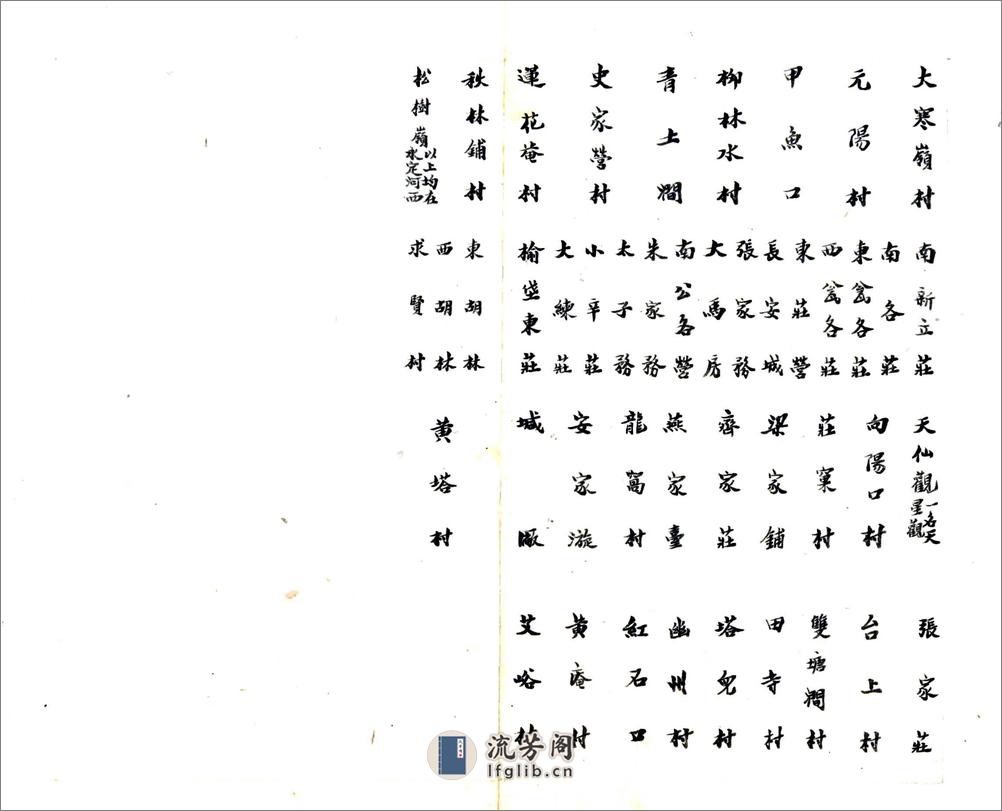 大寒嶺村
元陽村
甲魚口
柳林水村
青土澗
史家營村
蓮花菴村
秋林鋪村
松樹嶺以上均在永定河西
南新立莊
南各莊
東瓮各莊
西瓮各莊
東莊營
長安城
張家務
大馬房
南公各營
朱家務
太子務
小辛莊
大練莊
榆垡東莊
東胡林
西胡林
求賢村
天仙觀一名天星觀
向陽口村
莊窠村
梁家鋪
齊家莊
燕家臺
龍窩村
安家漩
堿廠
黄塔村
張家莊
台上村
雙塘澗村
田寺村
塔兒村
幽州村
紅石口
黄庵村
艾峪村
流芳阁
lfglib.cn